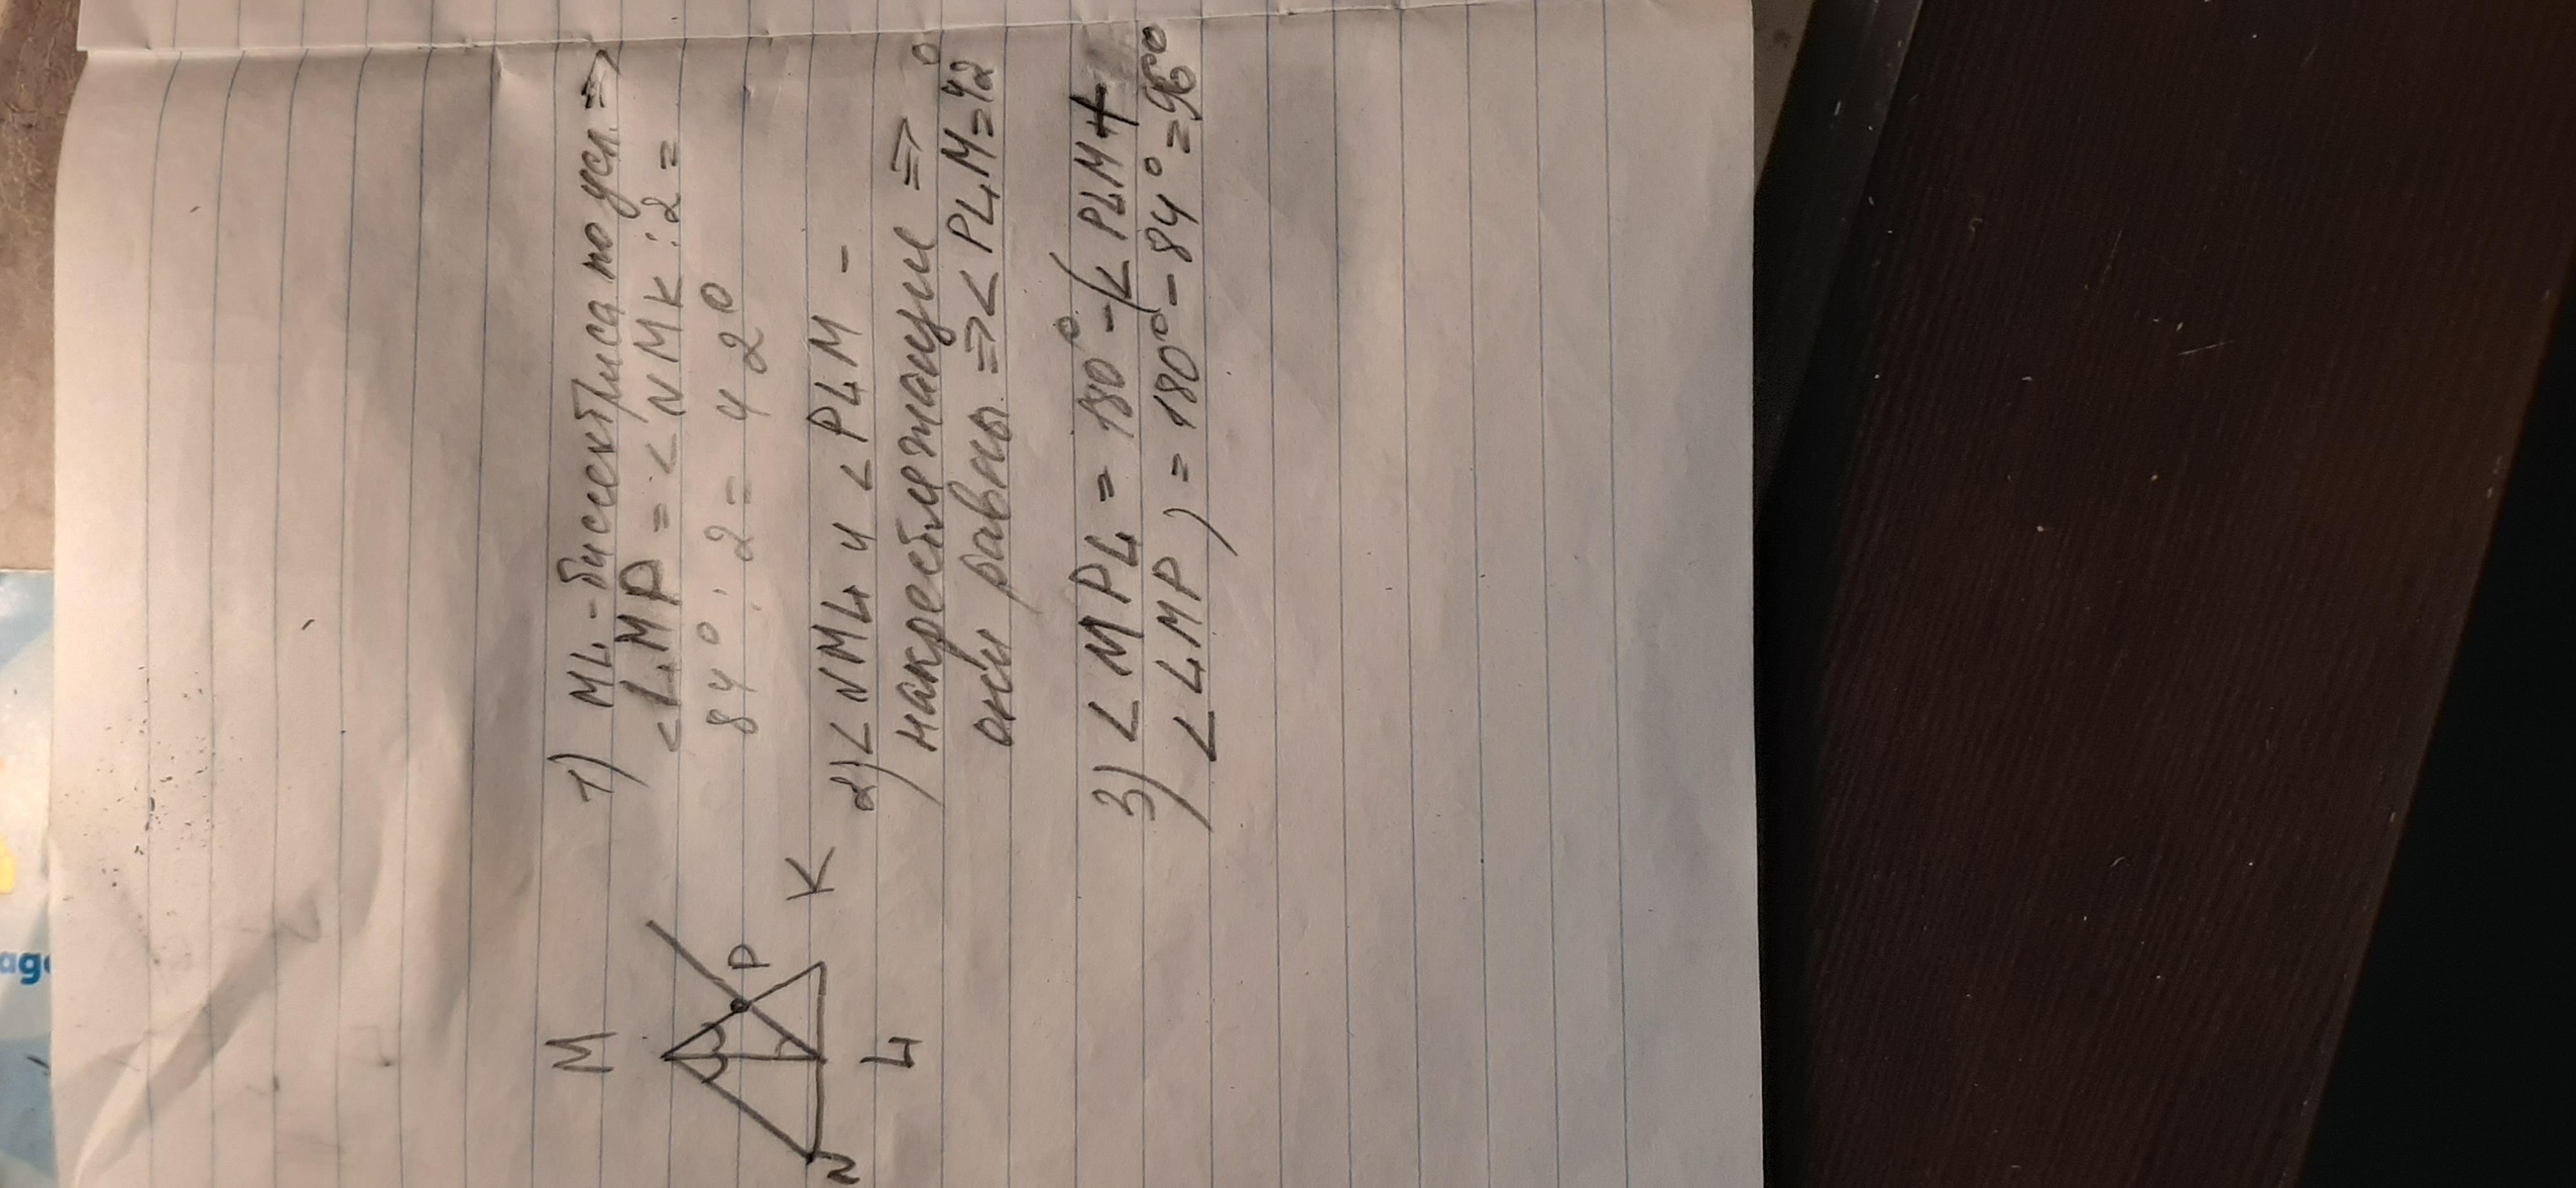 M
P
K
N
L
1) ML - биссектриса по усл. =>
< LMP = < NMK : 2 =
84° : 2 = 42°
2) < NML и < PLM -
накрестлежащие =>
они равны => < PLM = 42°
3) < MPL = 180° - (< PLM +
< LMP) = 180° - 84° = 96°
age